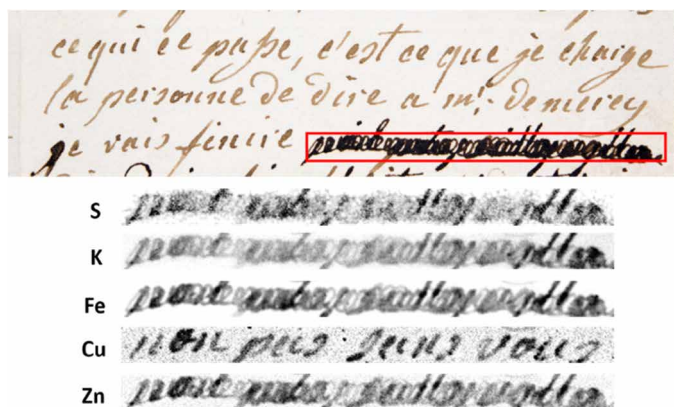 ce qui ce passe, c'est ce que je charge
la personne de dire a mr. de mercy
je vais finire
S
K
Fe
Cu non pas sans vous
Zn